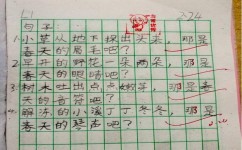 2-24
句子:
1.小草从地下探出头来,那是
春天的眉毛吧?
2.早开的野花一朵两朵,那是
春天的眼睛吧?
3.树木吐出点点嫩芽,那是春
天的音符吧?
4.解冻的小溪丁丁冬冬,那是
春天的琴声吧?